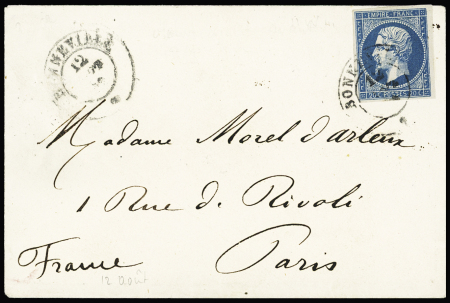 BONNEVILLE
12
EMPIRE FRANC.
20 C. POSTES 20 C.
BONNEV
Madame Morel d'arleux
1 Rue de Rivoli
France Paris
12 Août